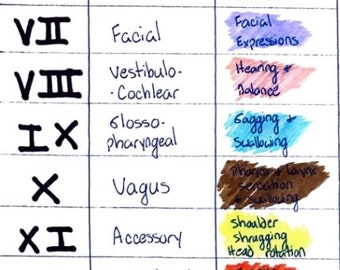 VII
Facial
Facial
Expressions
VIII
Vestibulo-
-Cochlear
Hearing +
Balance
IX
Glosso-
pharyngeal
Gagging +
Swallowing
X
Vagus
Pharynx + Larynx
sensation
+ swallowing
XI
Accessory
Shoulder
shrugging
Head rotation